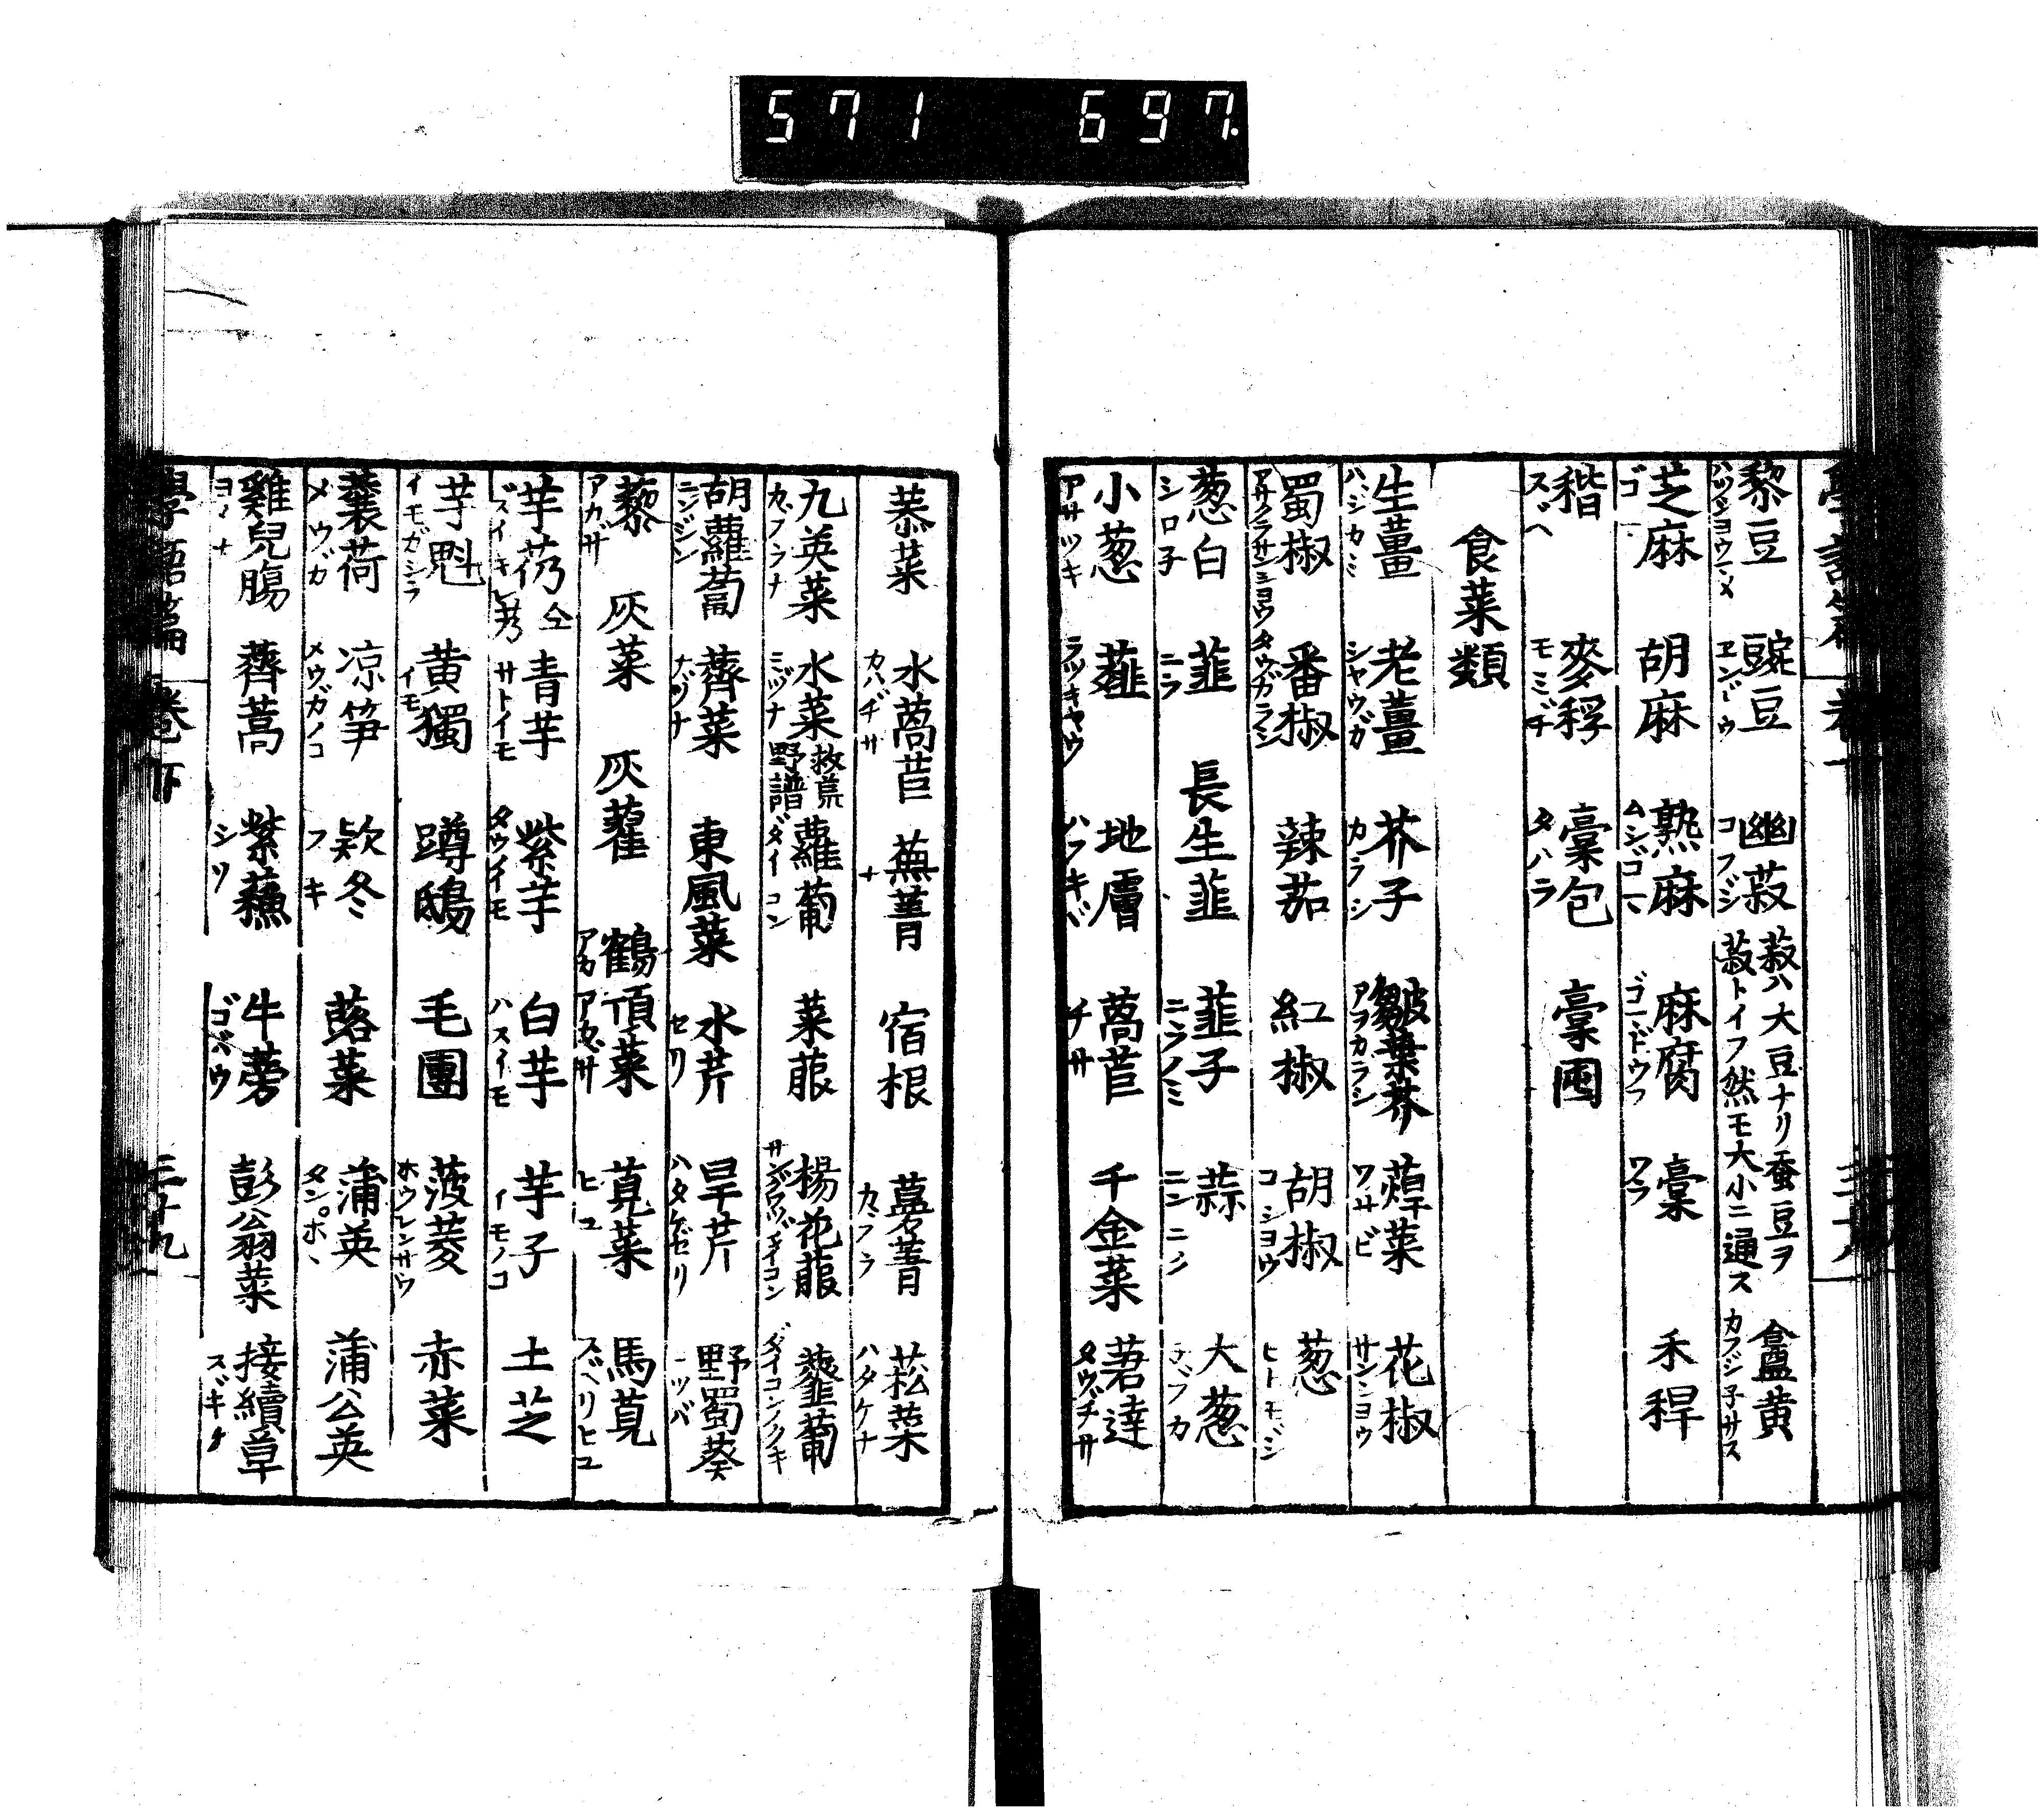 571 697.
黎豆 ハツシヨウマメ 豌豆 ヱンドウ 幽菽 コフジ 菽ハ大豆ナリ蚕豆ヲ菽トイフ然モ大小ニ通ス 盦黄 カフジ子サス
芝麻 ゴマ 胡麻 熟麻 ムシゴマ 麻腐 ゴマドウフ 稾 ワラ 禾稈
稭 スベ 麥稃 モミヂ 稾包 タハラ 稾囤
食菜類
生薑 ハジカミ 老薑 シヤウガ 芥子 カラシ 皺葉芥 アフカラシ 蔊菜 ワサビ 花椒 サンシヨウ
蜀椒 アサクラサンシヨウ 番椒 タウガラシ 辣茄 紅椒 胡椒 コシヨウ 葱 ヒトモジ
葱白 シロ子 韭 ニラ 長生韭 韭子 ニラノミ 蒜 ニンニク 大葱 子ブカ
小葱 アサツキ 薤 ラツキヤウ 地膚 ハフキギ 萵苣 チサ 千金菜 莙薘 タウヂサ
菾菜 水萵苣 カハヂサ 蕪菁 ナ 宿根 蔓菁 カブラ 菘菜 ハタケナ
九英菜 カブラナ 水菜 ミヅナ 救荒野譜 蘿蔔 ダイコン 菜菔 楊花菔 サングワツダイコン 虀蔔 ダイコンノクキ
胡蘿蔔 ニンジン 薺菜 ナヅナ 東風菜 水芹 セリ 旱芹 ハタゲゼリ 野蜀葵 ミツバ
藜 アカザ 灰菜 灰藋 鶴頂菜 アカアカザ 莧菜 ヒユ 馬莧 スベリヒユ
芋艿 ズイキ 仝芿 青芋 サトイモ 紫芋 タウイモ 白芋 ハスイモ 芋子 イモノコ 土芝
芋魁 イモガシラ 黄獨 イモ 蹲鴟 毛團 菠薐 ホウレンサウ 赤菜
蘘荷 メウガ 凉笋 メウガノコ 欵冬 フキ 蕗菜 蒲英 タンポヽ 蒲公英
雞兒膓 ヨメナ 薺蒿 紫蘓 シソ 牛蒡 ゴバウ 彭翁菜 接續草 スギナ
學語篇 卷下 三十九